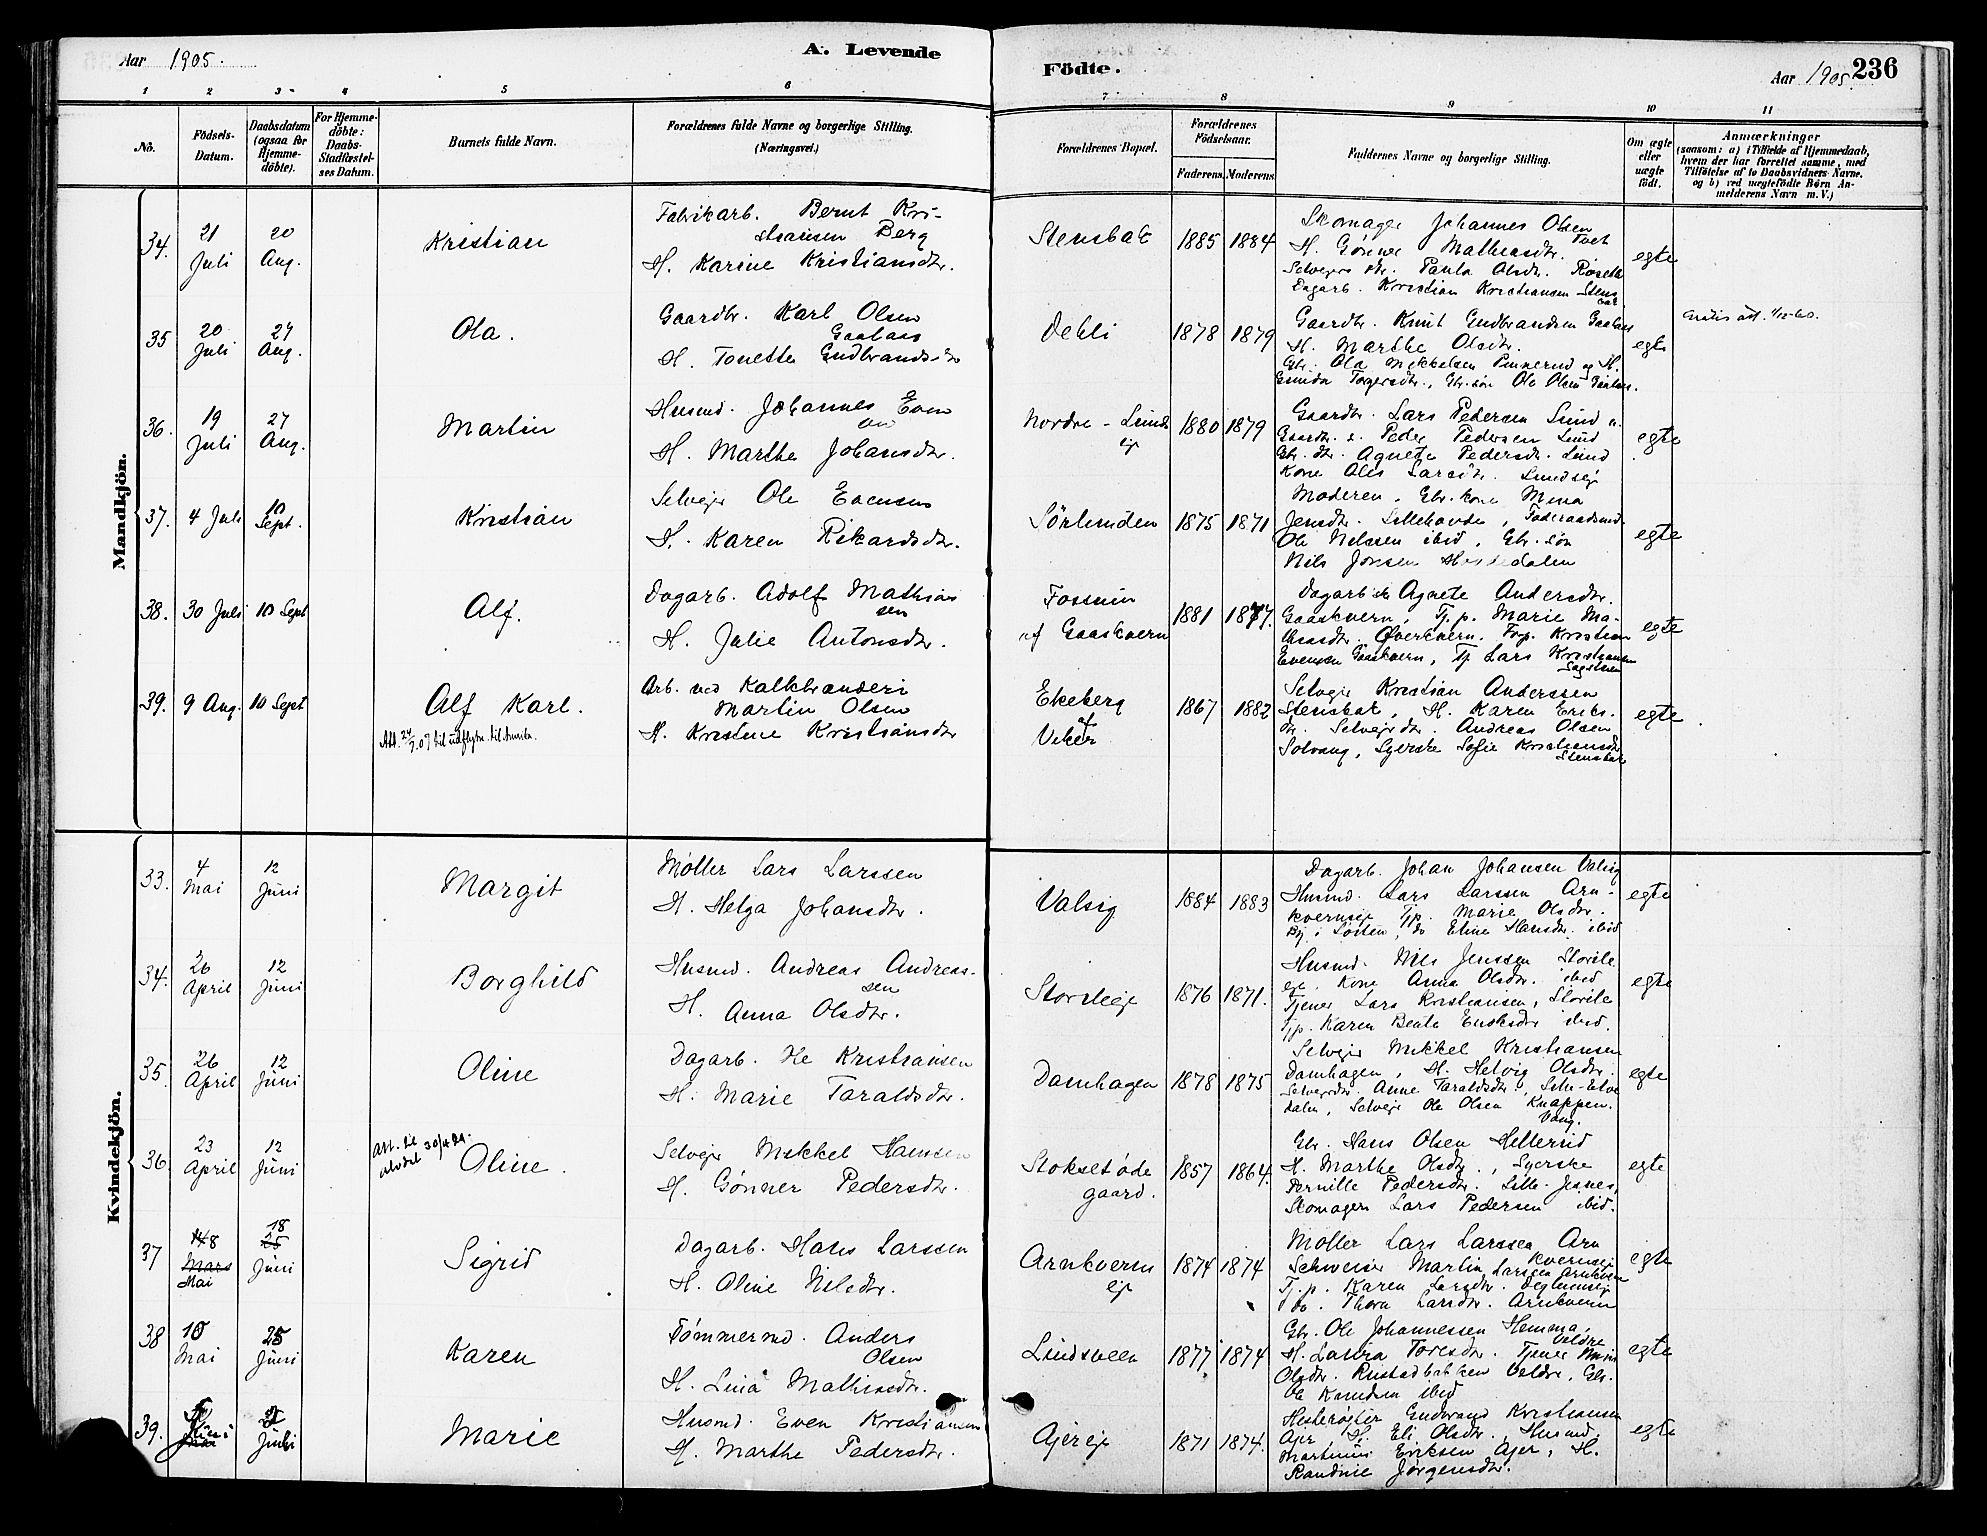 Aar 1905.
A. Levende
Födte.
Aar 1905.
236
1 2 3 4 5 6 7 8 9 10 11
No.
Födsels-
Datum.
Daabsdatum
(ogsaa for
Hjemme-
döbte).
For Hjemme-
döbte:
Daabs-
Stadfæstel-
ses Datum.
Barnets fulde Navn.
Forældrenes fulde Navne og borgerlige Stilling.
(Næringsvei.)
Forældrenes Bopæl.
Forældrenes
Födselsaar.
Faderens. Moderens.
Faddernes Navne og borgerlige Stilling.
Om ægte
eller
uægte
født.
Anmærkninger
(saasom: a) i Tilfælde af Hjemmedaab,
hvem der har forrettet samme, med
Tilföielse af to Daabsvidners Navne.
og b) ved uægtefödte Börn An-
melderens Navn m. V.)
Mandkjön.
34. 21 Juli 20 Aug. Kristian
Fabrikarb. Bernt Kri-
stiansen Berg
H. Karine Kristiansdtr.
Stensbak 1885 1884
Skomager Johannes Olsen
Tvet
H. Gønner Mathiasdtr.
Selveiers dtr. Paula Olsdtr. Roseth
Dagarb. Kristian Kristiansen Stens
bak
egte
35 20 Juli 27 Aug. Ola.
Gaardbr. Karl Olsen
Gaalaas
H. Tonette Gudbrandsdtr
Dehli 1878 1879
Gaardbr. Knut Gudbrandsen Gaalaas
H. Marthe Olsdtr.
Gbr. Ola Mikkelsen Pinnerud og H.
Gunda Torgersdtr., Gbr. søn Ole Olsen Gaalaas.
egte
36. 19 Juli 27 Aug. Martin
Husmd. Johannes Even
sen
H. Marthe Johansdtr.
Nordre-Lunds
ej
1880 1879
Gaardbr. Lars Pedersen Lund
Gaardbr. s. Peder Pedersen Lund
Gbr. dtr. Agnete Pedersdtr. Lund
Kone Larsdtr. Lundsej
egte
37. 4 Juli 10 Sept. Kristian
Selvejer Ole Evensen
H. Karen Rikardsdtr.
Sörlunden 1875 1871
Moderen, Gbr. kone Mina
Jensdtr. Lillehovde, Føderaadsmd.
Ole Nilssen ibid, Gbr. søn
Nils Jonsen
egte
38. 30 Juli 10 Sept Alf.
Dagarb. Adolf Mathias
sen
H. Julie Antonsdtr.
Fossum
af Gaaskvern
1881 1877.
Dagarb. Agnete Andersdtr.
Gaaskvern, Tj. p. Marie Ma-
thiasdtr. Øverkvern. Kristian
Evensen Gaaskvern, Tj. Lars Kristiansen
egte
39. 9 Aug. 10 Sept Alf Karl.
Att. 24/7.07 til udflytn. til
Arb. ved Kalkbrænderi
Martin Olsen
H. Kristine Kristiansdtr
Ekeberg
af
Veker
1867 1882
Selvejer Kristian Anderssen
Stensbak, H. Karen Eriks.
dtr. Selvejerdtr. Andreas Olsen
Solvang, Syerske Sofie Kristiansdtr
Stensbak
egte.
Kvindekjön.
33. 4 Mai 12 Juni Margit
Møller Lars Larssen
H. Helga Johansdtr.
Valsig 1884 1883
Dagarb. Johan Johansen Valsig
Husmd. Lars Larssen Arn-
kvernseje Tjp. Marie Olsdtr.
Pj. i Løiten, do Eline Hansdtr. ibid
egte
34. 26 April 12 Juni Borghild
Husmd. Andreas Andreas-
sen
H. Anna Olsdtr.
Storileje 1876 1871.
Husmd. Nils Jenssen Storile
eje. Kone Anna Olsdtr. ibid
Tjener Lars Kristiansen, Storile
Tjp. Karen Beate ibid.
egte
35. 26 April 12 Juni Oline
Dagarb. Ole Kristiansen
H. Marie Taraldsdtr.
Damhagen 1878 1875
Selvejer Mikkel Kristiansen
Damhagen, H. Helvig Olsdtr.
Selvejerdtr. Anne Taraldsdtr.,
dalen, Selvejer Ole Olsen Knappen.
Vang.
egte
36. 23 April 12 Juni Oline.
Att. til
30/4 24.
Selvejer Mikkel Hanssen
H. Gønner Pedersdtr.
Stoksetøde
gaard.
1857 1864.
Gbr. Hans Olsen Hellerud
H. Marthe Olsdtr., Syerske
Pernille Pedersdtr. Lille-Jesnes,
Skomager Lars Pedersen ibid.
egte
37 8 Mars Mai 18 25 Juni Sigrid
Dagarb. Hans Larssen
H. Oline Nilsdtr.
Arnkvern
ej
1874 1874
Møller Lars Larssen Arn
kvernsej
Schweiser Martin Larssen Arnkvern
Tj. p. Karen Larsdtr.
do. Thora Larsdtr. Arnkvern
egte
38 10 Mai 25 Juni Karen
Tømmermd. Anders
Olsen
H. Lina Mathiasdtr.
Lindsveen 1877 1874
Gbr. Ole Johannessen Hemma,
Veldre
H. Laura Toresdtr. Tjener
Olsdtr. Rustadbakken Veldre, Gbr.
Ole Knudsen ibid
egte
39. Juni Juli Marie
Husmd. Even Kristiansen
H. Marthe Pedersdtr.
Ajereje 1871 1874.
Hesterøgter Gudbrand Kristiansen
Ajer, H. Eli Olsdtr., Husmd.
Martinus Eriksen Ajer, H.
Randine Jørgensdtr.
egte